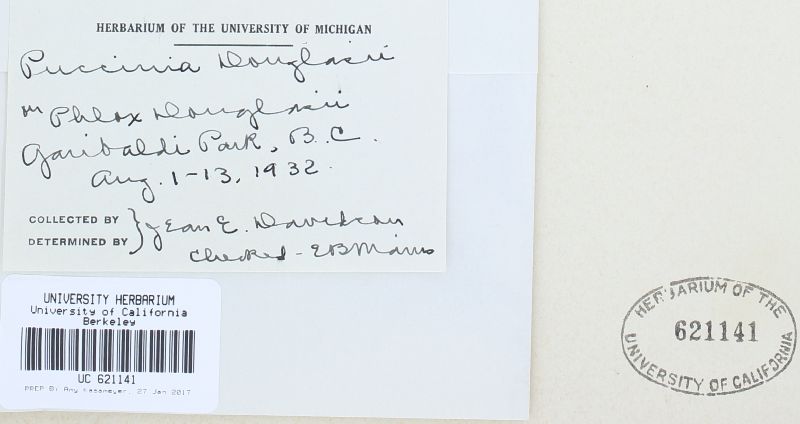 HERBARIUM OF THE UNIVERSITY OF MICHIGAN
Puccinia Douglasii
on Phlox Douglasii
Garibaldi Park, B.C.
Aug. 1-13, 1932.
COLLECTED BY } Jean E. Davidson
DETERMINED BY
Checked - EB Mains
UNIVERSITY HERBARIUM
University of California
Berkeley
UC 621141
PREP By Amy Kasameyer, 27 Jan 2017
HERBARIUM OF THE
621141
UNIVERSITY OF CALIFORNIA